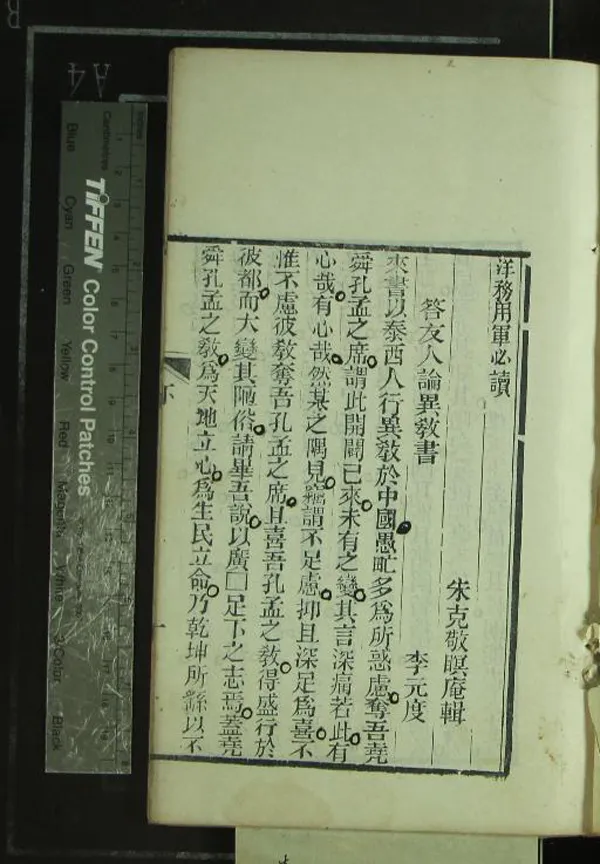 洋務用軍必讀
朱克敬暝庵輯
答友人論異教書
李元度
來書以泰西人行異教於中國愚氓多為所惑慮奪吾堯
舜孔孟之席謂此開闢已來未有之變其言深痛若此有
心哉有心哉然某之隅見竊謂不足慮抑且深足為喜不
惟不慮彼教奪吾孔孟之席且喜吾孔孟之教得盛行於
彼都而大變其陋俗請畢吾說以廣□足下之志焉蓋堯
舜孔孟之教為天地立心為生民立命乃乾坤所繇以不
一
A4
TIFFEN Color Control Patches
Centimetres
Blue
Cyan
Green
Yellow
Red
Magenta
White
3/Color
Black